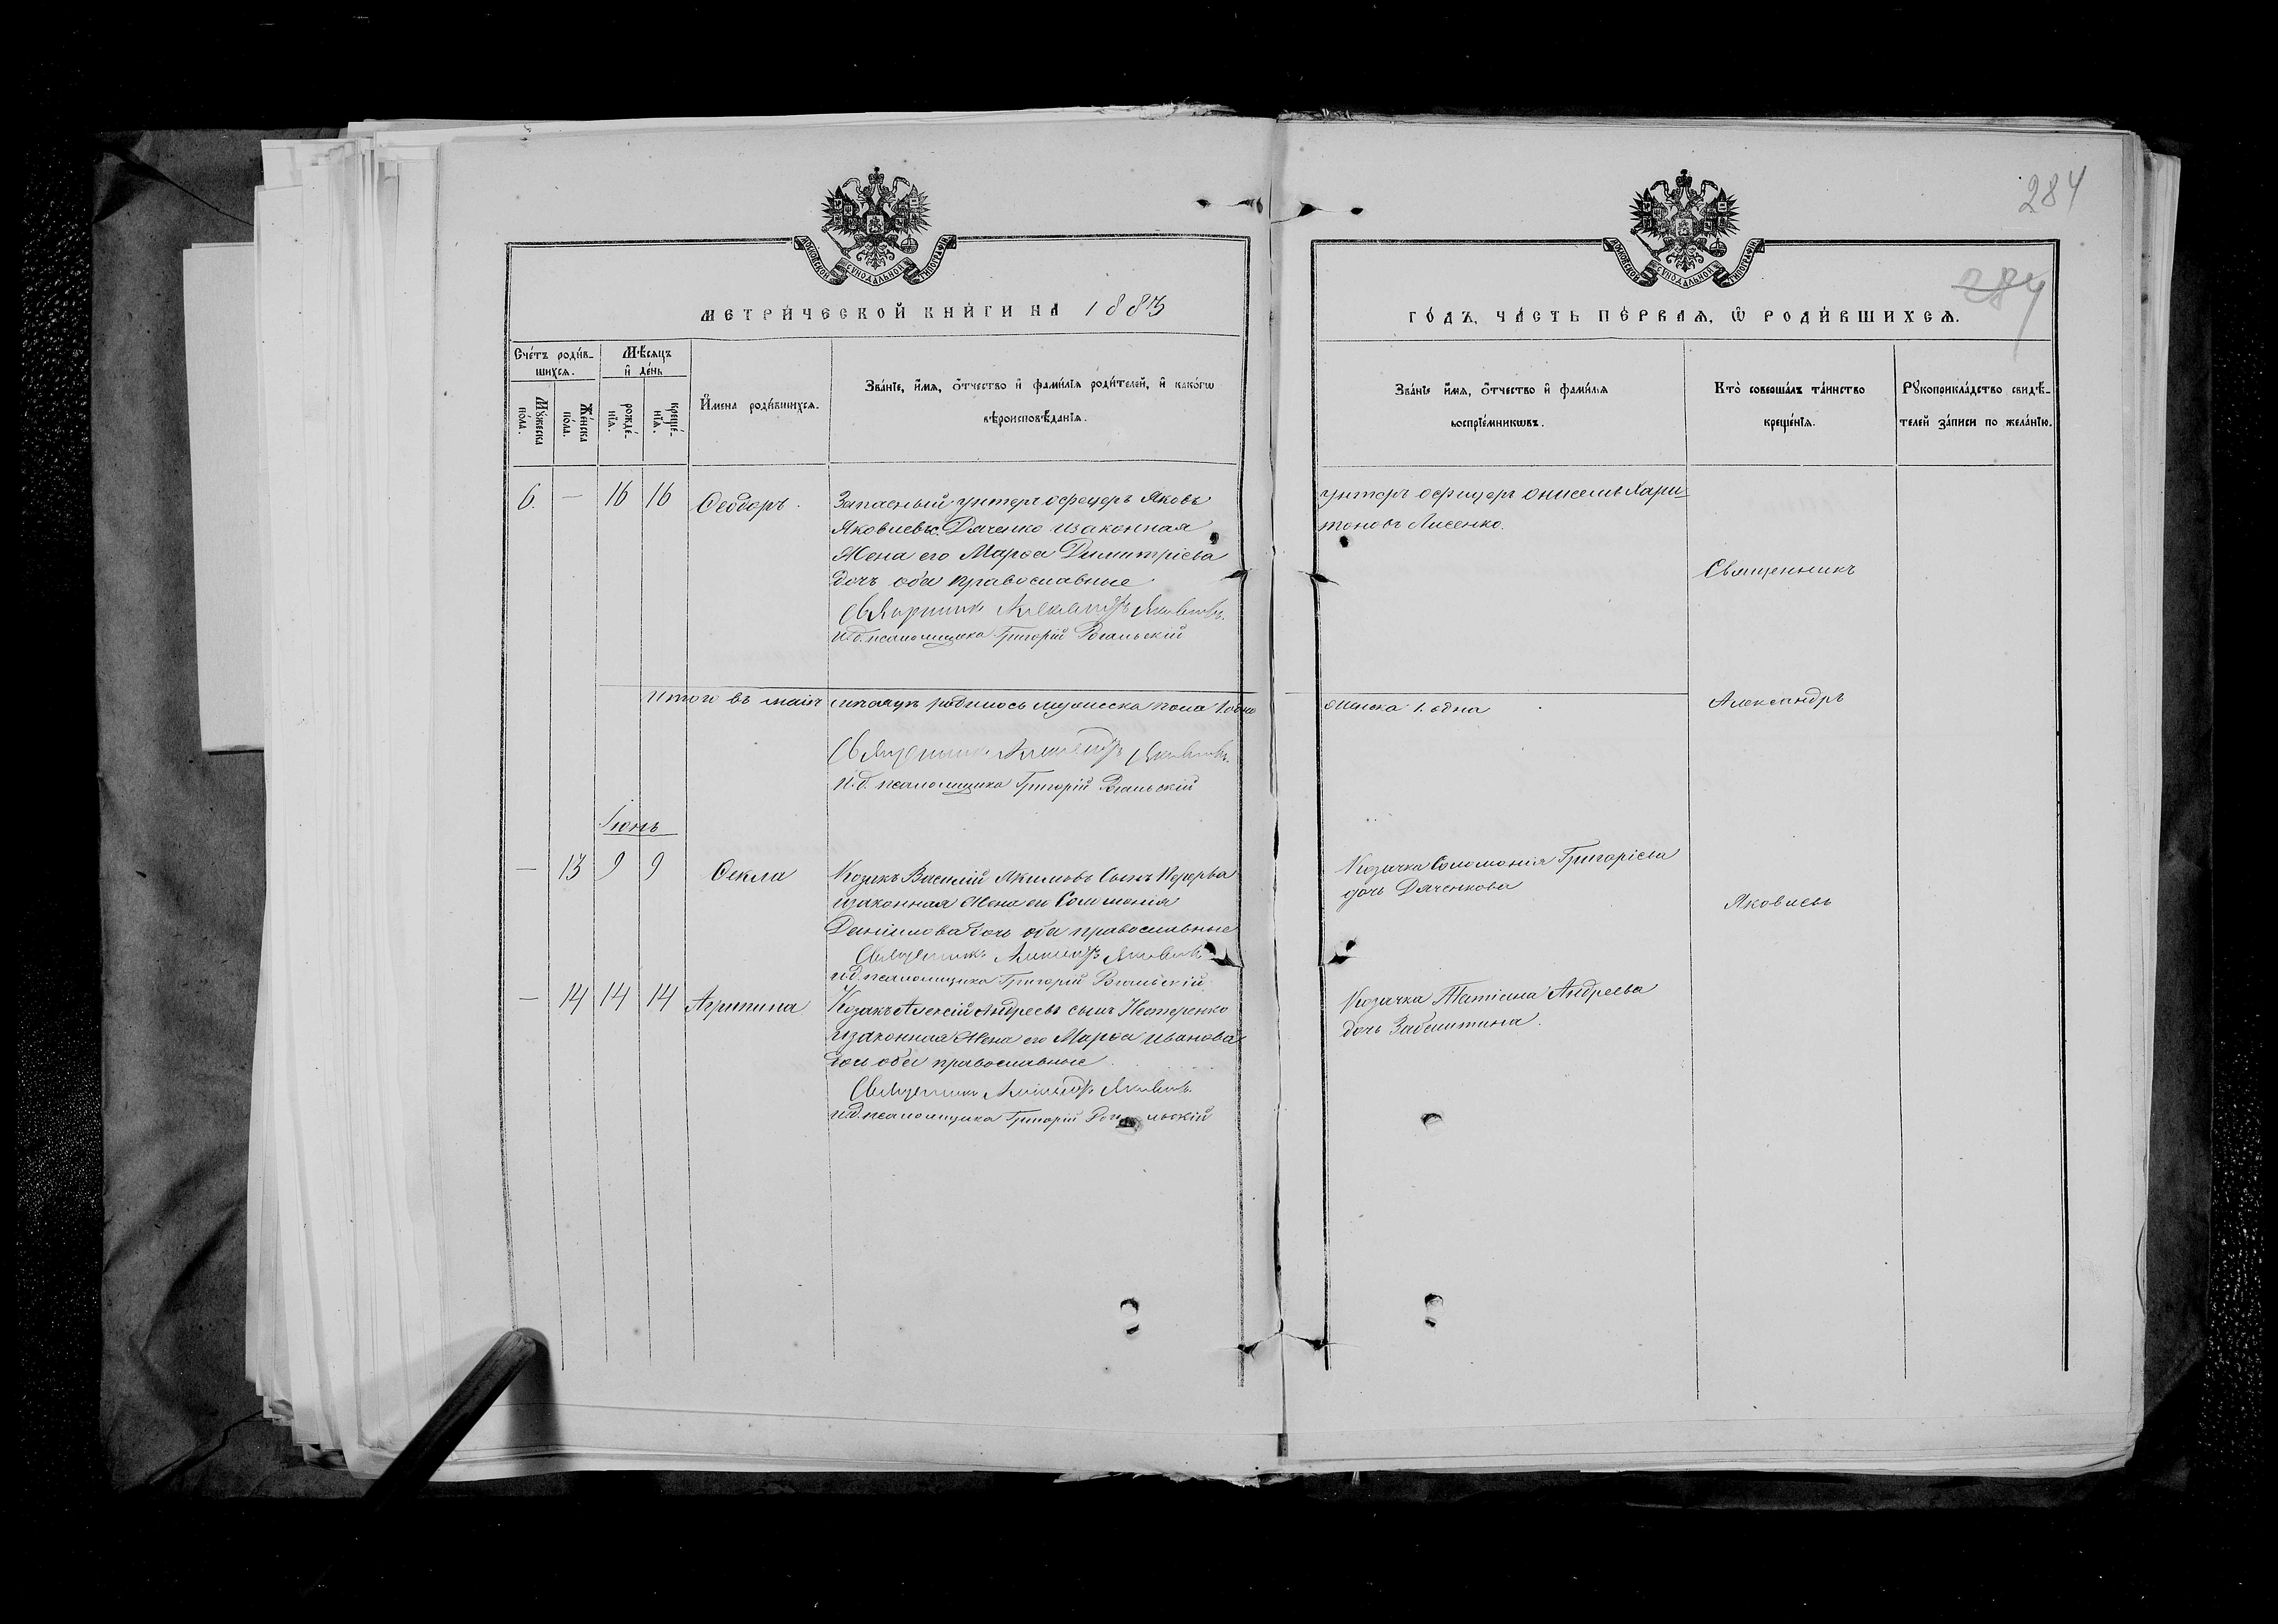 284
284
МОСКОВСКОЙ СѴНОДАЛЬНОЙ ТИПОГРАФІИ
МОСКОВСКОЙ СѴНОДАЛЬНОЙ ТИПОГРАФІИ
МЕТРИ́ЧЕСКОЙ КНИ́ГИ НА 1883
ГО́ДЪ, ЧА́СТЬ ПЕ́РВАЯ, Ѿ РОДИ́ВШИХСЯ.
Сче́тъ роди́в-
шихся.
Мѣ́сяцъ
и҆ де́нь
Му́жеска
по́ла.
Же́нска
по́ла.
рожде́-
нїя.
креще́-
нїя.
И҆мена роди́вшихся.
Зва́нїе, и҆́мя, ѻ҆́тчество и҆ фами́лїя роди́телей, и҆ како́гѡ
вѣроисповѣ́данїя.
Зва́нїе и҆́мя, ѻ҆́тчество и҆ фами́лїя
воспрїе́мникѡвъ.
Кто̀ соверша́лъ та́инство
креще́нїя.
Рꙋкоприкла́дство свидѣ́-
телей за́писи по жела́нїю.
6. — 16 16 Ѳеодоръ.
Запасный унтеръ офецеръ Яковъ
Яковлевъ с. Дяченко изаконная
Жена его Марѳа Димитріева
дочь оба православные
Священникъ Александръ Яковлевъ.
И.д. псаломщика Григорій
унтеръ офицеръ Онисемъ Хари-
тоновъ Лисенко.
Священникъ
Итого въ маіи месяцѣ родилось мужеска пола 1. одно
женска 1. одна
Александръ
Священникъ Александръ Яковлевъ.
И.д. псаломщика Григорій
Іюнь
— 13 9 9 Ѳекла
Козакъ Василій Якимовъ Сынъ Перерва
изаконная Жена его Соломонія
Даніилова дочь оба православные
Священникъ Александръ Яковлевъ
и.д. псаломщика Григорій
Козачка Соломонія Григоріева
дочь Дяченкова
Яковлевъ
— 14 14 14 Агрипина
Козакъ Алексій Андреевъ сынъ Нестеренко
изаконная Жена его Марѳа Иванова
дочь оба православные
Священникъ Александръ Яковлевъ.
и.д. псаломщика Григорій
Козачка Татіана Андреева
дочь Забаштина.